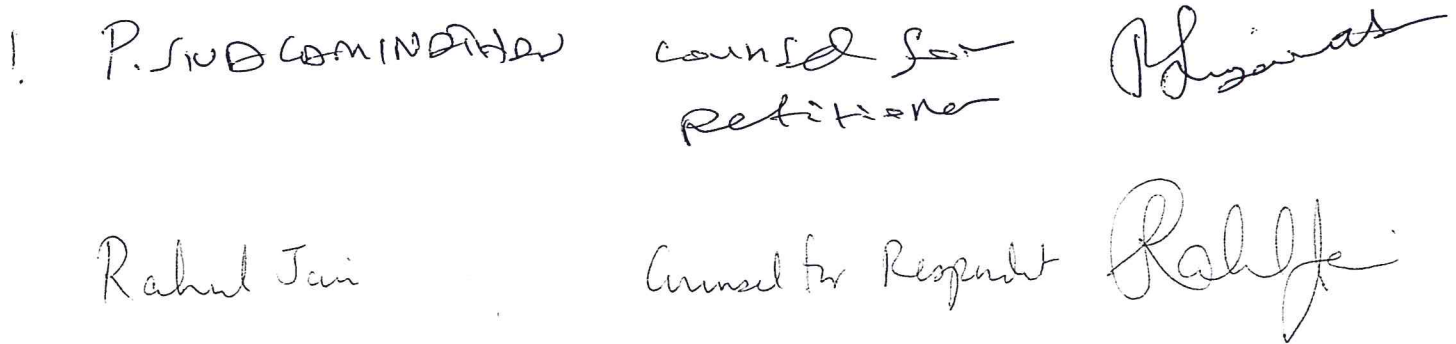 ! P. SIVACAMINATHAN counsel for
petitioner
Rahul Jain Counsel for Respondent Rahul Jain